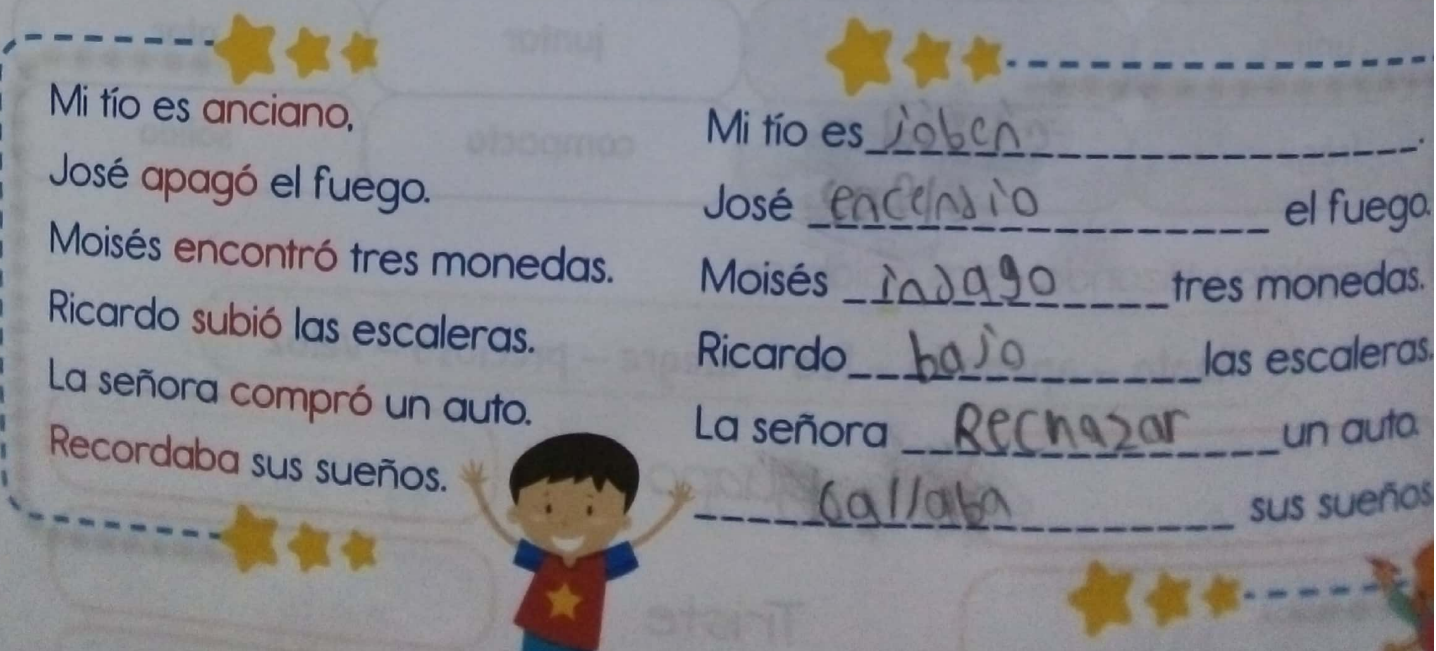 Mi tío es anciano,
José apagó el fuego.
Moisés encontró tres monedas.
Ricardo subió las escaleras.
La señora compró un auto.
Recordaba sus sueños.
Mi tío es joben.
José encendio el fuego.
Moisés indago tres monedas.
Ricardo bajo las escaleras.
La señora Rechazar un auto.
Callaba sus sueños